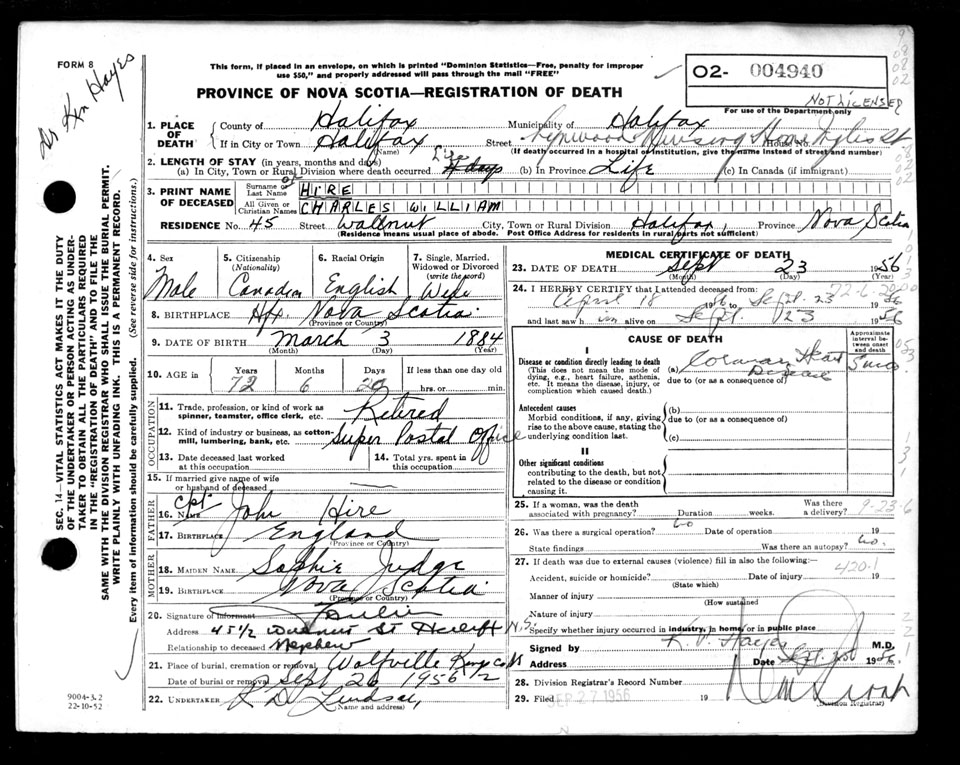 FORM 8
Dr Ken Hayes
This form, if placed in an envelope, on which is printed "Dominion Statistics—Free, penalty for improper
use $50," and properly addressed will pass through the mail "FREE"
O2- 004940
NOT LICENSED
For use of the Department only
PROVINCE OF NOVA SCOTIA—REGISTRATION OF DEATH
1. PLACE OF DEATH
County of Halifax Municipality of Halifax
If in City or Town Halifax Street Nursing Home House No.
(Name) (If death occurred in a hospital or institution, give the name instead of street and number)
2. LENGTH OF STAY (in years, months and days)
(a) In City, Town or Rural Division where death occurred Life days (b) In Province Life (c) In Canada (if immigrant)
3. PRINT NAME OF DECEASED
Surname or Last Name HIRE
All Given or Christian Names CHARLES WILLIAM
RESIDENCE No. 45 Street Walnut City, Town or Rural Division Halifax, Province Nova Scotia
(Residence means usual place of abode. Post Office Address for residents in rural parts not sufficient)
4. Sex Male
5. Citizenship (Nationality) Canadian
6. Racial Origin English
7. Single, Married, Widowed or Divorced (write the word)
8. BIRTHPLACE Hfx. Nova Scotia
(Province or Country)
9. DATE OF BIRTH March 3 1884
(Month) (Day) (Year)
10. AGE in Years 72 Months 6 Days 20 If less than one day old hrs. or min.
OCCUPATION
11. Trade, profession or kind of work as spinner, teamster, office clerk, etc. Retired
12. Kind of industry or business, as cotton-mill, lumbering, bank, etc. Super Postal Office
13. Date deceased last worked at this occupation
14. Total yrs. spent in this occupation
15. If married give name of wife or husband of deceased
FATHER
16. Name Cpt. John Hire
17. Birthplace England
(Province or Country)
MOTHER
18. Maiden Name Sophie Judge
19. Birthplace Nova Scotia
(Province or Country)
20. Signature of Informant
Address 45 1/2 Walnut St Halifax N.S.
Relationship to deceased Nephew
21. Place of burial, cremation or removal Wolfville Kings Co NS
Date of burial or removal Sept 26 1956
22. Undertaker Lindsay
(Name and address)
MEDICAL CERTIFICATE OF DEATH
23. DATE OF DEATH Sept 23 1956
(Month) (Day)
24. I HEREBY CERTIFY that I attended deceased from:
April 18 1956 to Sept. 23 1956
and last saw him alive on Sept. 23 1956
CAUSE OF DEATH
Approximate interval between onset and death
I
Disease or condition directly leading to death
(This does not mean the mode of dying, e.g., heart failure, asthenia, etc. It means the disease, injury, or complication which caused death.)
(a) Coronary Heart Disease
due to (or as a consequence of)
Antecedent causes
Morbid conditions, if any, giving rise to the above cause, stating the underlying condition last.
(b)
due to (or as a consequence of)
(c)
II
Other significant conditions
contributing to the death, but not related to the disease or condition causing it.
25. If a woman, was the death associated with pregnancy? Duration weeks. Was there a delivery?
9-23-6
26. Was there a surgical operation? No Date of operation 19
State findings Was there an autopsy? No.
27. If death was due to external causes (violence) fill in also the following:
420.1
Accident, suicide or homicide? Date of injury 19
(State which)
Manner of injury
(How sustained)
Nature of injury
Specify whether injury occurred in industry, in home, or in public place
Signed by K. V. Hayes M.D.
Address Date Sept. 1956.
28. Division Registrar's Record Number
29. Filed SEP 27 1956 19
(Division Registrar)
SEC. 14—VITAL STATISTICS ACT MAKES IT THE DUTY
OF THE UNDERTAKER OR PERSON ACTING AS UNDER-
TAKER TO OBTAIN ALL THE PARTICULARS REQUIRED
IN THE "REGISTRATION OF DEATH" AND TO FILE THE
SAME WITH THE DIVISION REGISTRAR WHO SHALL ISSUE THE BURIAL PERMIT.
WRITE PLAINLY WITH UNFADING INK. THIS IS A PERMANENT RECORD.
Every item of information should be carefully supplied. (See reverse side for instructions.)
9004-3.2
22-10-52